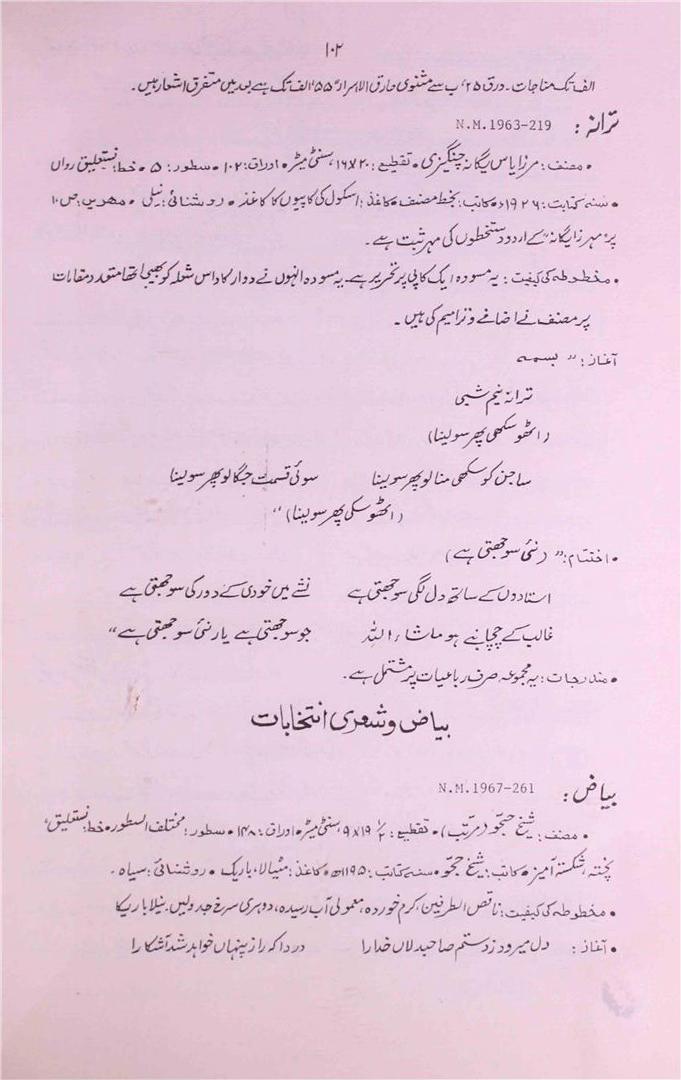 ۱۰۲
الف تک مناجات۔ ورق ۲۵، ب سے مثنوی خارق الاسرار "۵۵، الف تک ہے بعد میں متفرق اشعار ہیں۔
ترانہ : N.M.1963-219
• مصنف : مرزا یاس یگانہ چنگیزی • تقطیع : ۲۰×۱۶، سنٹی میٹر • اوراق : ۱۰۲ • سطور : ۵ • خط : نستعلیق رواں
• سنہ کتابت : ۱۹۲۶ء • کاتب : بخط مصنف • کاغذ : اسکول کی کاپیوں کا کاغذ • روشنائی : نیلی • مہریں : ص ۱۰
پر "مہر مرزا یگانہ" کے اردو دستخطوں کی مہر ثبت ہے۔
• مخطوطہ کی کیفیت : یہ مسودہ ایک کاپی پر تحریر ہے۔ یہ مسودہ انہوں نے دوارکا داس شعلہ کو بھیجا تھا متعدد مقامات
پر مصنف نے اضافے و ترامیم کی ہیں۔
آغاز : " بسمہ
ترانۂ نیم شبی
(اٹھو سکھی پھر سو لینا)
ساجن کو سکھی منا لو پھر سو لینا سوئی قسمت جگا لو پھر سو لینا
(اٹھو سکی پھر سو لینا) "
• اختتام : " (نئی سوجھتی ہے)
استادوں کے ساتھ دل لگی سوجھتی ہے نشے میں خودی کے دور کی سوجھتی ہے
غالب کے چچا بنے ہو ماشاء اللہ جو سوجھتی ہے یار نئی سوجھتی ہے "
• مندرجات : یہ مجموعہ صرف رباعیات پر مشتمل ہے۔
بیاض و شعری انتخابات
بیاض : N.M.1967-261
• مصنف : شیخ حجو (مرتب) • تقطیع : ۱۹×۹ ۱/۲، سنٹی میٹر • اوراق : ۱۴۸ • سطور : مختلف السطور • خط : نستعلیق،
پختہ، شکستہ آمیز • کاتب : شیخ حجو • سنہ کتابت : ۱۱۹۵ھ • کاغذ : مٹیالا، باریک • روشنائی : سیاہ۔
• مخطوطہ کی کیفیت : ناقص الطرفین، کرم خوردہ، معمولی آب رسیدہ، دوہری سرخ جدولیں۔ نیلا باریکا
• آغاز : دل میرود ز دستم صاحبدلاں خدارا دردا کہ راز پنہاں خواہد شد آشکارا